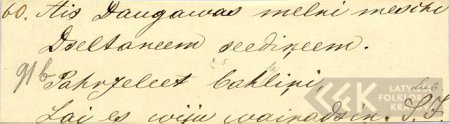 60. Ais Daugawas melni meschi
Dseltaneem seediņeem.
91b Pahrzeleet bahliņi,
Lai es wiju wainadsiņ. S. J.
LATVIEŠU
FOLKLORAS
KRĀTUVE